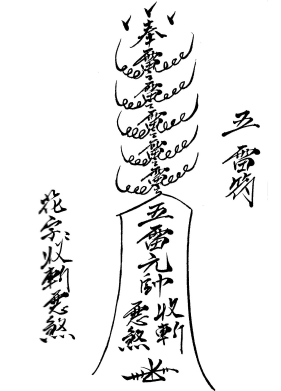 五雷符
奉
雷
雷
雷
雷
雷
五雷元帥收斬惡煞
花字收斬惡煞